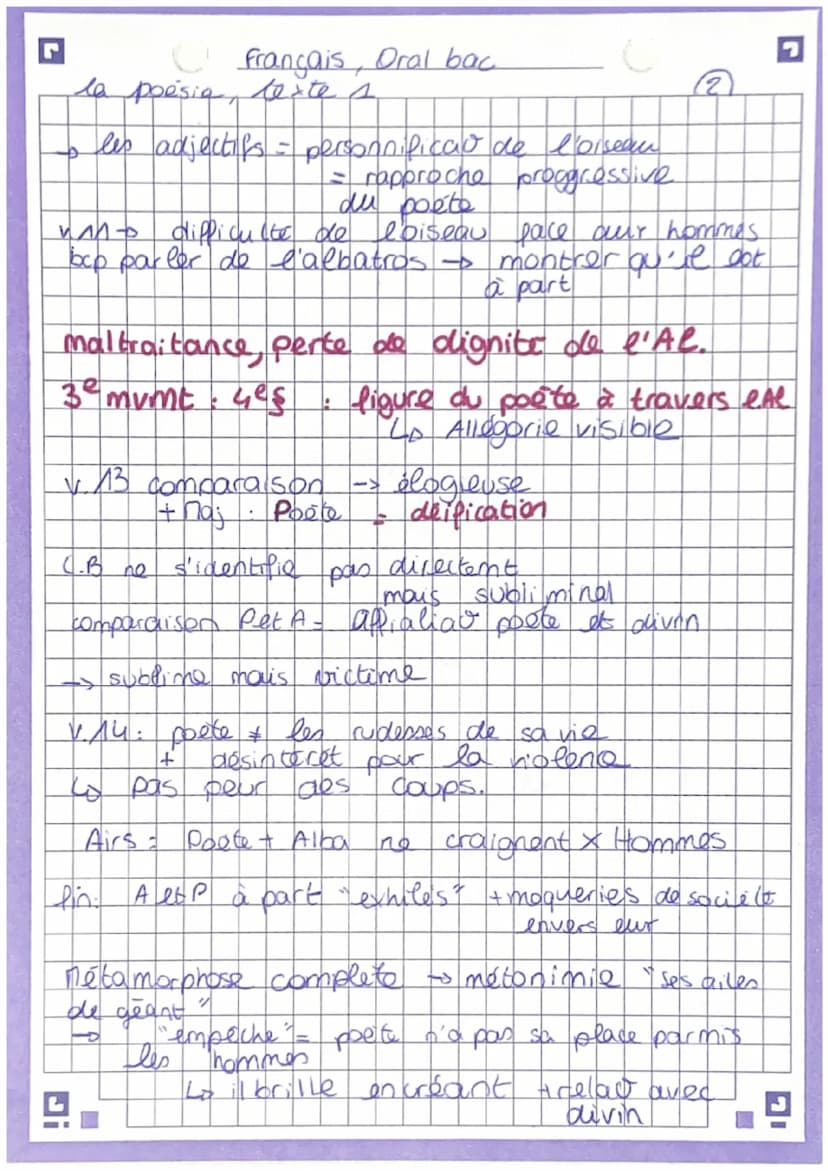 Français, Oral bac
la poésie, texte 1 (2)
→ les adjectifs = personnificaO de l'oiseau
= rapproche proggressive
du poète
v.11→ difficulté de l'oiseau face aux hommes
bcp parler de l'albatros → montrer qu'il est
à part
maltraitance, perte de dignité de l'Al.
3e mvmt : 4e§ : figure du poète à travers l'Al
↳ Allégorie visible
v.13 comparaison → élogieuse
+ Maj : Poète = déification
C.B ne s'identifie pas directemt
mais subliminal
comparaison P et A = affialiaO poète et divin
→ sublime mais victime
V.14 : poète ≠ les rudesses de sa vie
+ désintérêt pour la violence
↳ pas peur des coups.
Airs = Poète + Alba ne craignent x Hommes
fin: A et P à part "exhilés" + moqueries de société
envers eux
Métamorphose complète → métonimie "ses ailes
de géant"
→ "empêche" = poète n'a pas sa place parmis
les hommes
↳ il brille en créant + relaO avec
divin